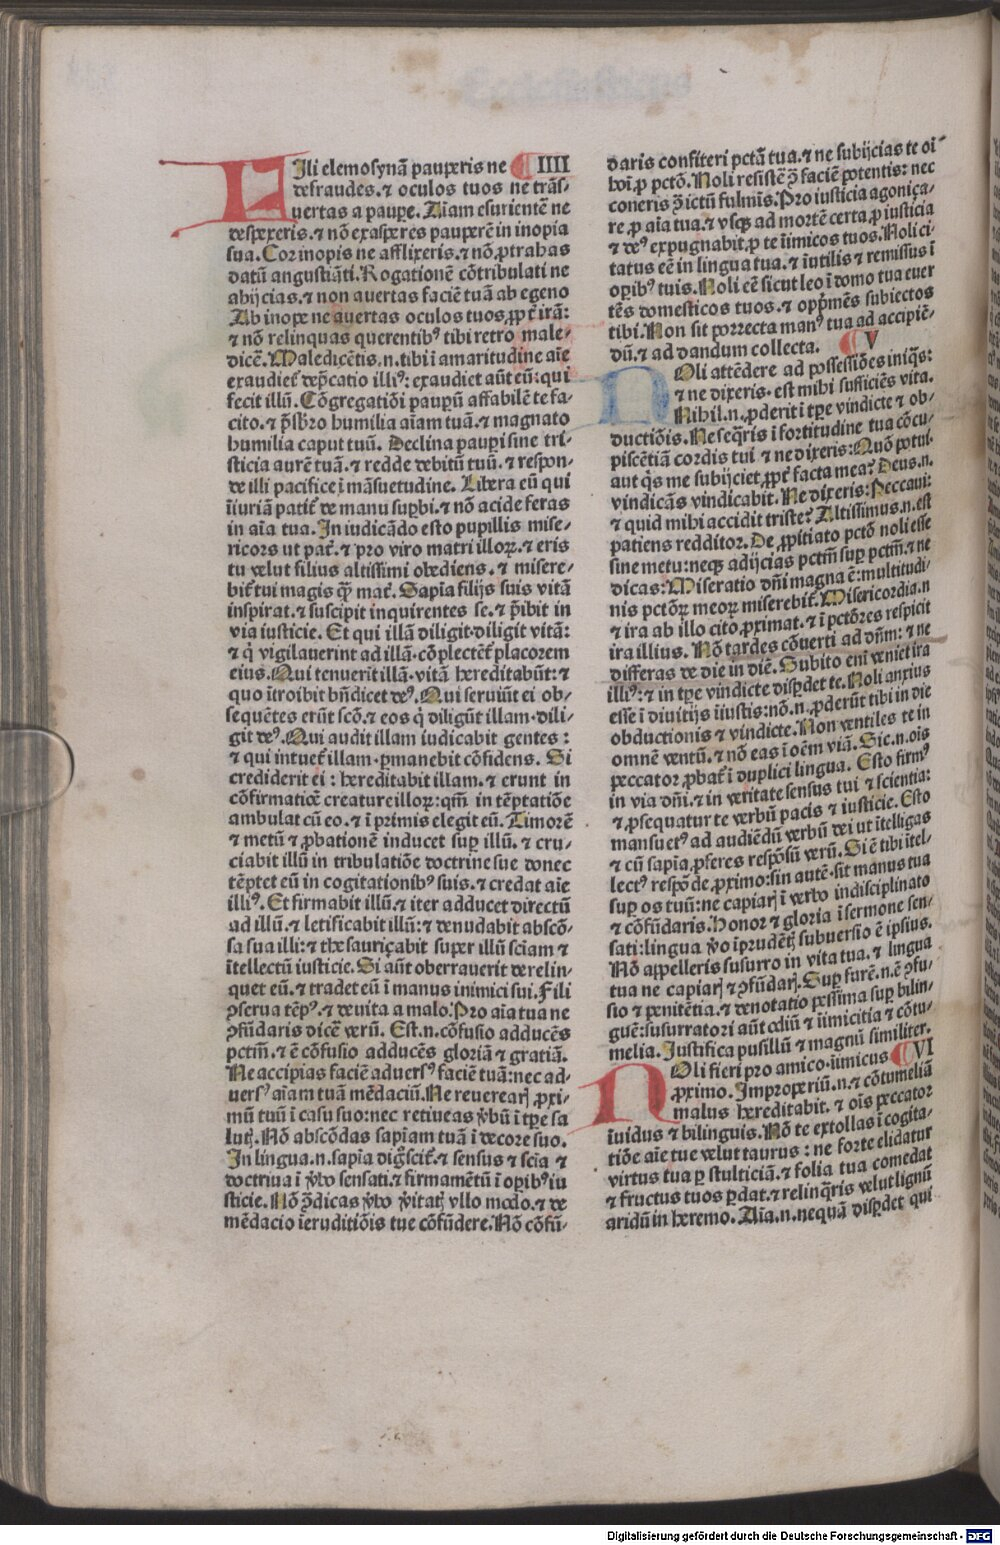 Fili elemosynā pauꝑeris ne ¶ IIII
defraudes. ⁊ oculos tuos ne trāſ-
uertas a pauꝑe. Aīam eſurientē ne
deſpexeris. ⁊ nō exaſperes pauperē in inopia
ſua. Cor inopis ne afflixeris. ⁊ nō ꝓtrahas
datū anguſtiāti. Rogationē cōtribulati ne
abijcias. ⁊ non auertas faciē tuā ab egeno
Ab inope ne auertas oculos tuos ꝓpt̄ irā:
⁊ nō relinquas querentibꝰ tibi retro male-
dicē. Maledicētis .n. tibi ī amaritudine aīe
exaudiet̄ dep̄catio illiꝰ: exaudiet aūt eū: qui
fecit illū. Cōgregatiōi paupꝝ affabilē te fa
cito. ⁊ p̄ſbr̄o humilia aīam tuā. ⁊ magnato
humilia caput tuū. Declina paupi ſine tri-
ſticia aurē tuā. ⁊ redde debitū tuū. ⁊ reſpon-
de illi pacifice ī māſuetudine. Libera eū qui
īiuriā patit̄ de manu ſupbi. ⁊ nō acide feras
in aīa tua. In iudicādo eſto pupillis miſe-
ricors ut pat̄. ⁊ pro viro matri illoꝝ. ⁊ eris
tu velut filius altiſſimi obediens. ⁊ miſere-
bit̄ tui magis q̄ꝫ mat̄. Sapīa filijs ſuis vitā
inſpirat. ⁊ ſuſcipit inquirentes ſe. ⁊ p̄ibit in
via iuſticie. Et qui illā diligit. diligit vitā:
⁊ q̄ vigilauerint ad illā. cōplectēt̄ placorem
eius. Qui tenuerit illā. vitā hereditabūt: ⁊
quo ītroibit bn̄dicet deꝰ. Qui ſeruiūt ei ob-
ſequētes erūt ſcō. ⁊ eos q̄ diligūt illam. dili-
git deꝰ. Qui audit illam iudicabit gentes:
⁊ qui intuet̄ illam. ꝑmanebit cōfidens. Si
crediderit ei: hereditabit illam. ⁊ erunt in
cōfirmatiōe creature illoꝝ: qm̄ in tēptatiōe
ambulat cū eo. ⁊ ī primis elegit eū. Timorē
⁊ metū ⁊ ꝓbationē inducet ſup illū. ⁊ cru-
ciabit illū in tribulatiōe doctrine ſue donec
tēptet eū in cogitationibꝰ ſuis. ⁊ credat aīe
illiꝰ. Et firmabit illū. ⁊ iter adducet directū
ad illū. ⁊ letificabit illū: ⁊ denudabit abſcō-
ſa ſua illi: ⁊ theſauriçabit ſuper illū ſciam ⁊
ītellectū iuſticie. Si aūt oberrauerit derelin-
quet eū. ⁊ tradet eū ī manus inimici ſui. Fili
ꝯſerua tēpꝰ. ⁊ deuita a malo. Pro aīa tua ne
ꝯfūdaris dicē verū. Eſt .n. cōfuſio adducēs
pctm̄. ⁊ ē cōfuſio adducēs gloriā ⁊ gratiā.
Ne accipias faciē aduerſꝰ faciē tuā: nec ad-
uerſꝰ aīam tuā mēdaciū. Ne reuereaꝝ ꝓxi-
mū tuū ī caſu ſuo: nec retineas v̄bū ī tꝑe ſa
lutꝭ. Nō abſcōdas ſapīam tuā ī decore ſuo.
In lingua .n. ſapīa digſcit̄. ⁊ ſenſus ⁊ ſcīa ⁊
doctrīna ī v̄bo ſenſati. ⁊ firmamētū ī oꝑibꝰ iu
ſticie. Nō ꝯ̄dicas v̄bo v̄itatꝭ vllo modo. ⁊ de
mēdacio īeruditiōis tue cōfūdere. Nō cōfū-
daris confiteri pctā tua. ⁊ ne ſubijcias te oī
hoī ꝓ pctō. Noli reſiſtē ꝯ̄ faciē potentis: nec
coneris ꝯ̄ ictū fulmīs. Pro iuſticia agoniça-
re ꝓ aīa tua. ⁊ vſqꝫ ad mortē certa ꝓ iuſticia
⁊ deꝰ expugnabit ꝓ te īimicos tuos. Noli ci-
tatus eē in lingua tua. ⁊ īutilis ⁊ remiſſus ī
oꝑibꝰ tuis. Noli eē ſicut leo ī domo tua euer
tēs domeſticos tuos. ⁊ oppmēs ſubiectos
tibi. Non ſit porrecta manꝰ tua ad accipiē-
dū. ⁊ ad dandum collecta. ¶ V
Noli attēdere ad poſſeſſiōes iniq̄s:
⁊ ne dixeris. eſt mihi ſufficiēs vita.
Nihil .n. ꝓderit ī tꝑe vindicte ⁊ ob-
ductiōis. Ne ſeq̄ris ī fortitudine tua cōcu-
piſcētiā cordis tui ⁊ ne dixeris: Quō potui.
aut q̄s me ſubijciet ꝓpt̄ facta mea? Deus .n.
vindicās vindicabit. Ne dixeris: Peccaui:
⁊ quid mihi accidit triſte? Altiſſimus .n. eſt
patiens redditor. De ꝓpitiato pctō noli eſſe
ſine metu: neqꝫ adijcias pctm̄ ſup pctm̄. ⁊ ne
dicas: Miſeratio dn̄i magna ē: multitudi-
nis pctōꝝ meoꝝ miſerebit̄. Miſericordia .n
⁊ ira ab illo cito ꝓximat. ⁊ ī pctōres reſpicit
ira illius. Nō tardes cōuerti ad dn̄m: ⁊ ne
differas de die in diē. Subito enī veniet ira
illiꝰ: ⁊ in tꝑe vindicte diſꝑdet te. Noli anxius
eſſe ī diuitijs īiuſtis: nō .n. ꝓderūt tibi in die
obductionis ⁊ vindicte. Non ventiles te in
omnē ventū. ⁊ nō eas ī oēm viā. Sic .n. oīs
peccator ꝓbat̄ ī duplici lingua. Eſto firmꝰ
in via dn̄i. ⁊ in veritate ſenſus tui ⁊ ſcientia:
⁊ ꝓſequatur te verbū pacis ⁊ iuſticie. Eſto
manſuetꝰ ad audiēdū verbū dei ut ītelligas
⁊ cū ſapīa ꝓferes reſpōſū verū. Si ē tibi ītel-
lectꝰ reſpōde ꝓximo: ſin autē. ſit manus tua
ſup os tuū: ne capiarꝭ ī verbo indiſciplinato
⁊ cōfūdaris. Honor ⁊ gloria ī ſermone ſen-
ſati: lingua v̄o īprudētꝭ ſubuerſio ē ipſius.
Nō appelleris ſuſurro in vita tua. ⁊ lingua
tua ne capiarꝭ ⁊ ꝯfūdarꝭ. Sup furē .n. ē ꝯfu-
ſio ⁊ penitētia. ⁊ denotatio peſſima ſup bilin-
guē: ſuſurratori aūt odiū ⁊ īimicitia ⁊ cōtu-
melia. Juſtifica puſillū ⁊ magnū ſimiliter.
Noli fieri pro amico. īimicus ¶ VI
ꝓximo. Improperiū .n. ⁊ cōtumeliā
malus hereditabit. ⁊ oīs peccator
īuidus ⁊ bilinguis. Nō te extollas ī cogita-
tiōe aīe tue velut taurus: ne forte elidatur
virtus tua ꝑ ſtulticiā. ⁊ folia tua comedat
⁊ fructus tuos ꝑdat. ⁊ relinq̄ris velut lignū
aridū in heremo. Aīa .n. nequā diſꝑdet qui
Digitalisierung gefördert durch die Deutsche Forschungsgemeinschaft - DFG